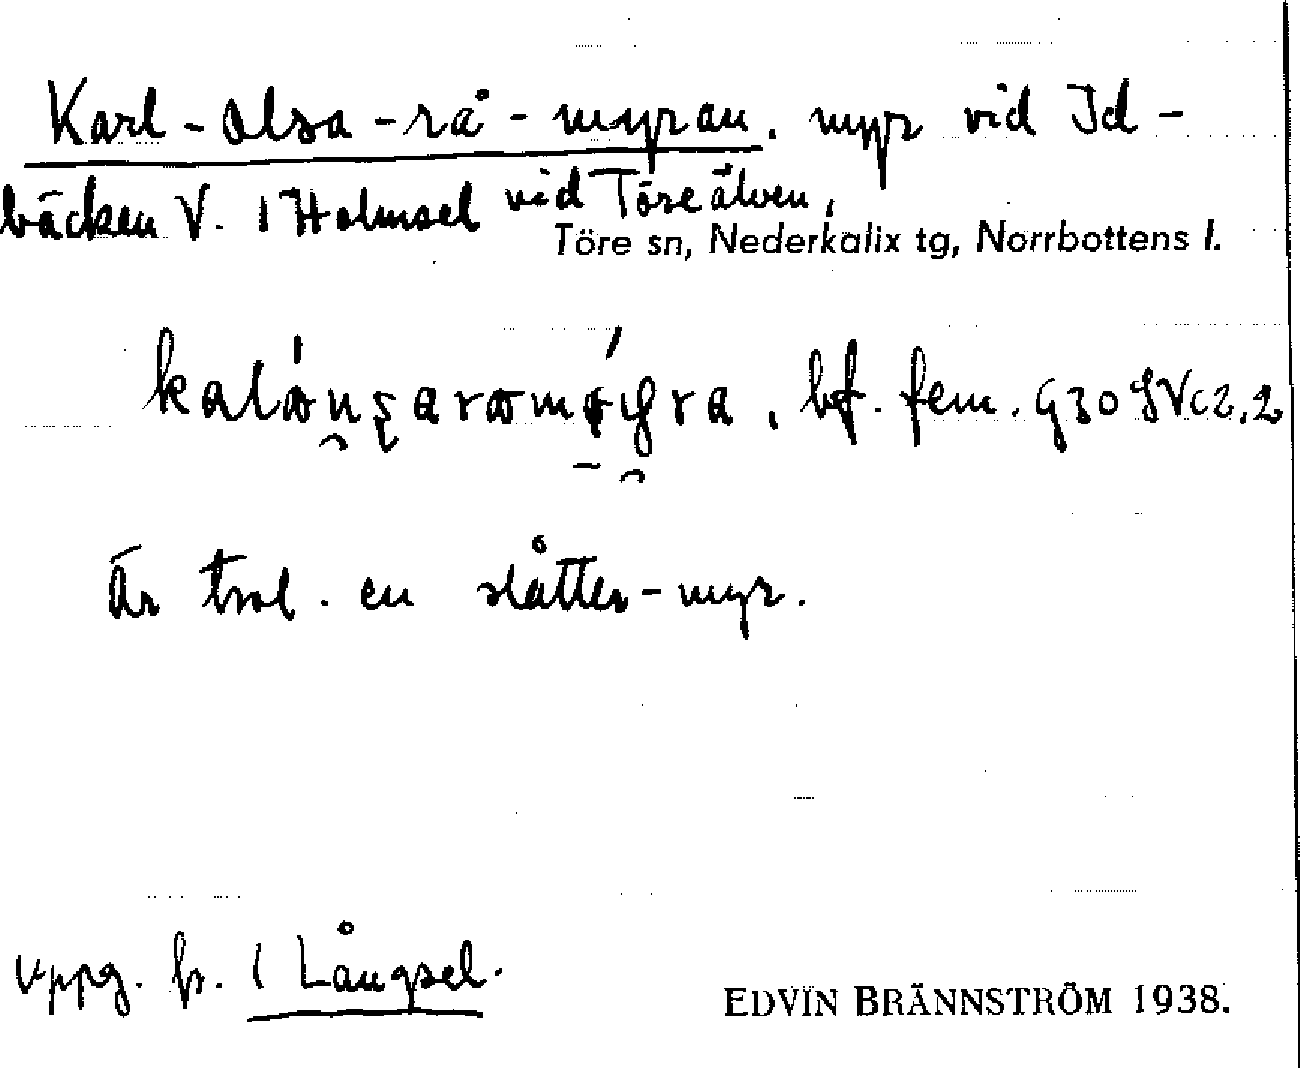 Karl-Olsa-rå-myran. myr vid Id-
bäcken V. 1 Holmsel vid Töreälven,
Töre sn, Nederkalix tg, Norrbottens l.
bf. fem.
Är trol. en slåtter-myr.
Uppg. fr. 1 Långsel.
EDVIN BRÄNNSTRÖM 1938.